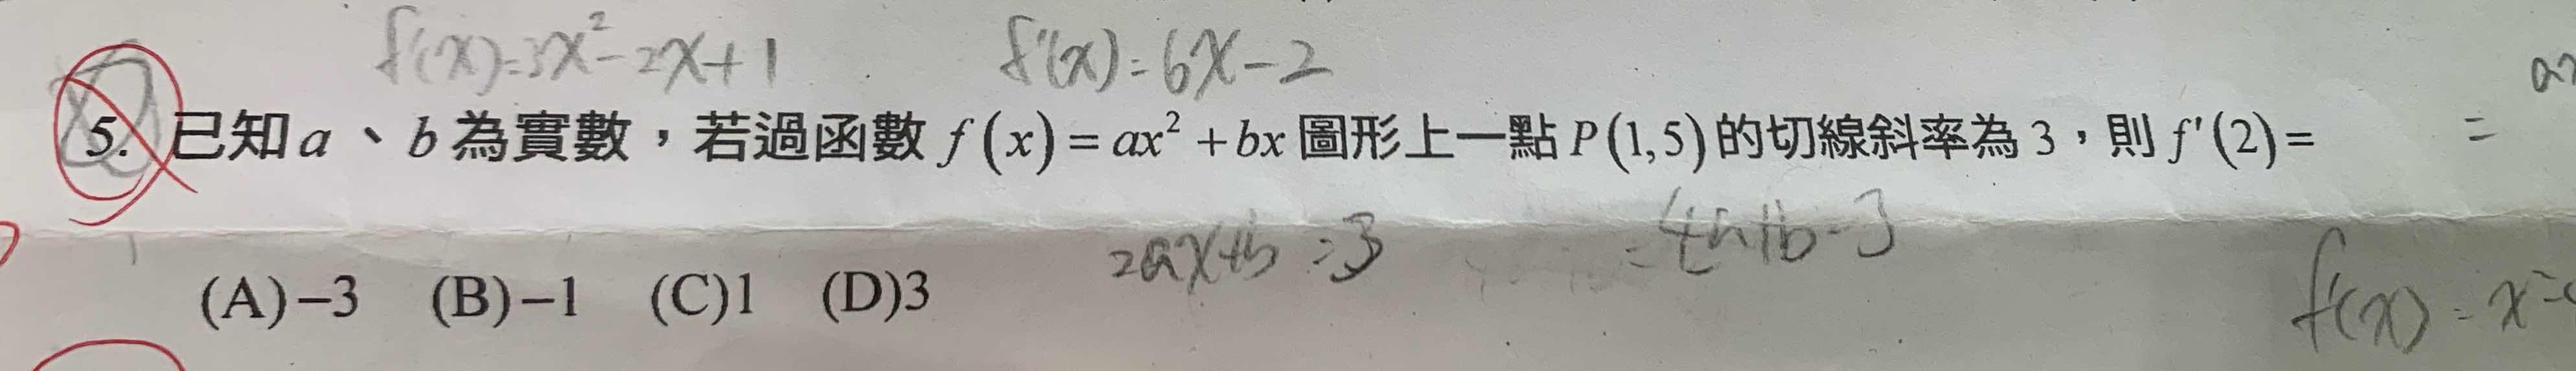 f'(x)=3x²-2x+1 f'(x)=6x-2
5. 已知a、b為實數，若過函數 f(x)=ax²+bx 圖形上一點P(1,5)的切線斜率為3，則f'(2)= =
2ax+b=3
(A)-3 (B)-1 (C)1 (D)3
f'(x)=x²